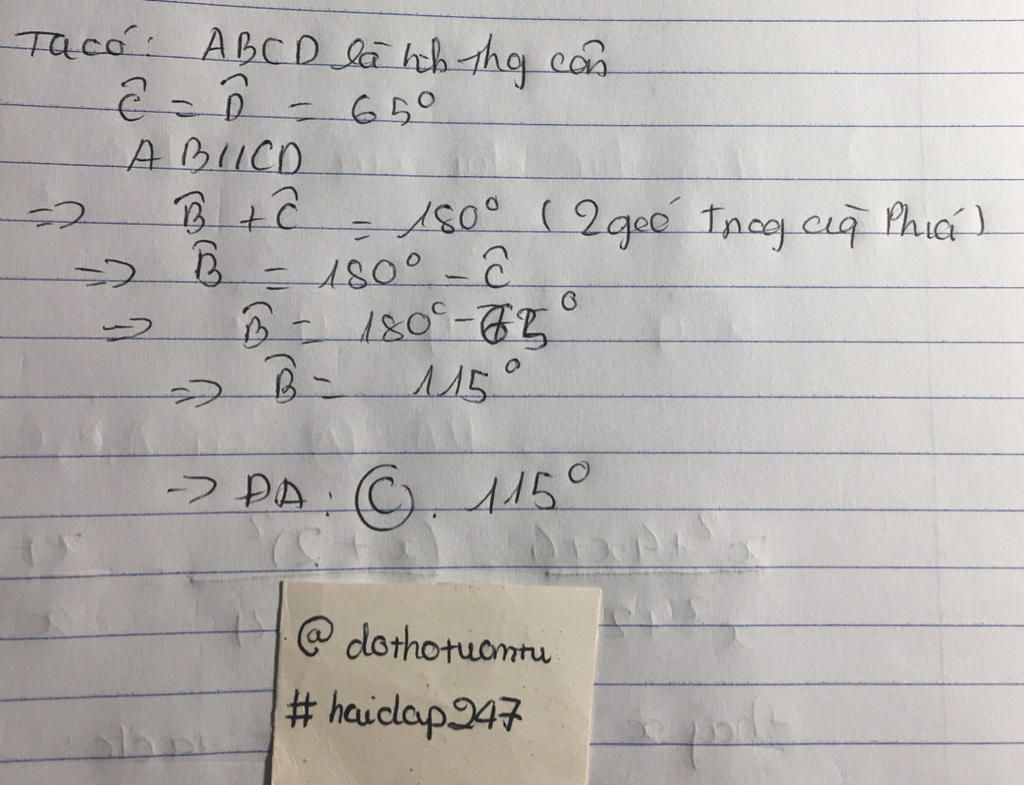 Ta có: ABCD là hh thg cân
Ĉ = D̂ = 65°
AB//CD
=> B̂ + Ĉ = 180° (2 góc trog cùg phía)
=> B̂ = 180° - Ĉ
=> B̂ = 180° - 65°
=> B̂ = 115°
-> DA: C. 115°
@ dothotuantu
# hoidap247